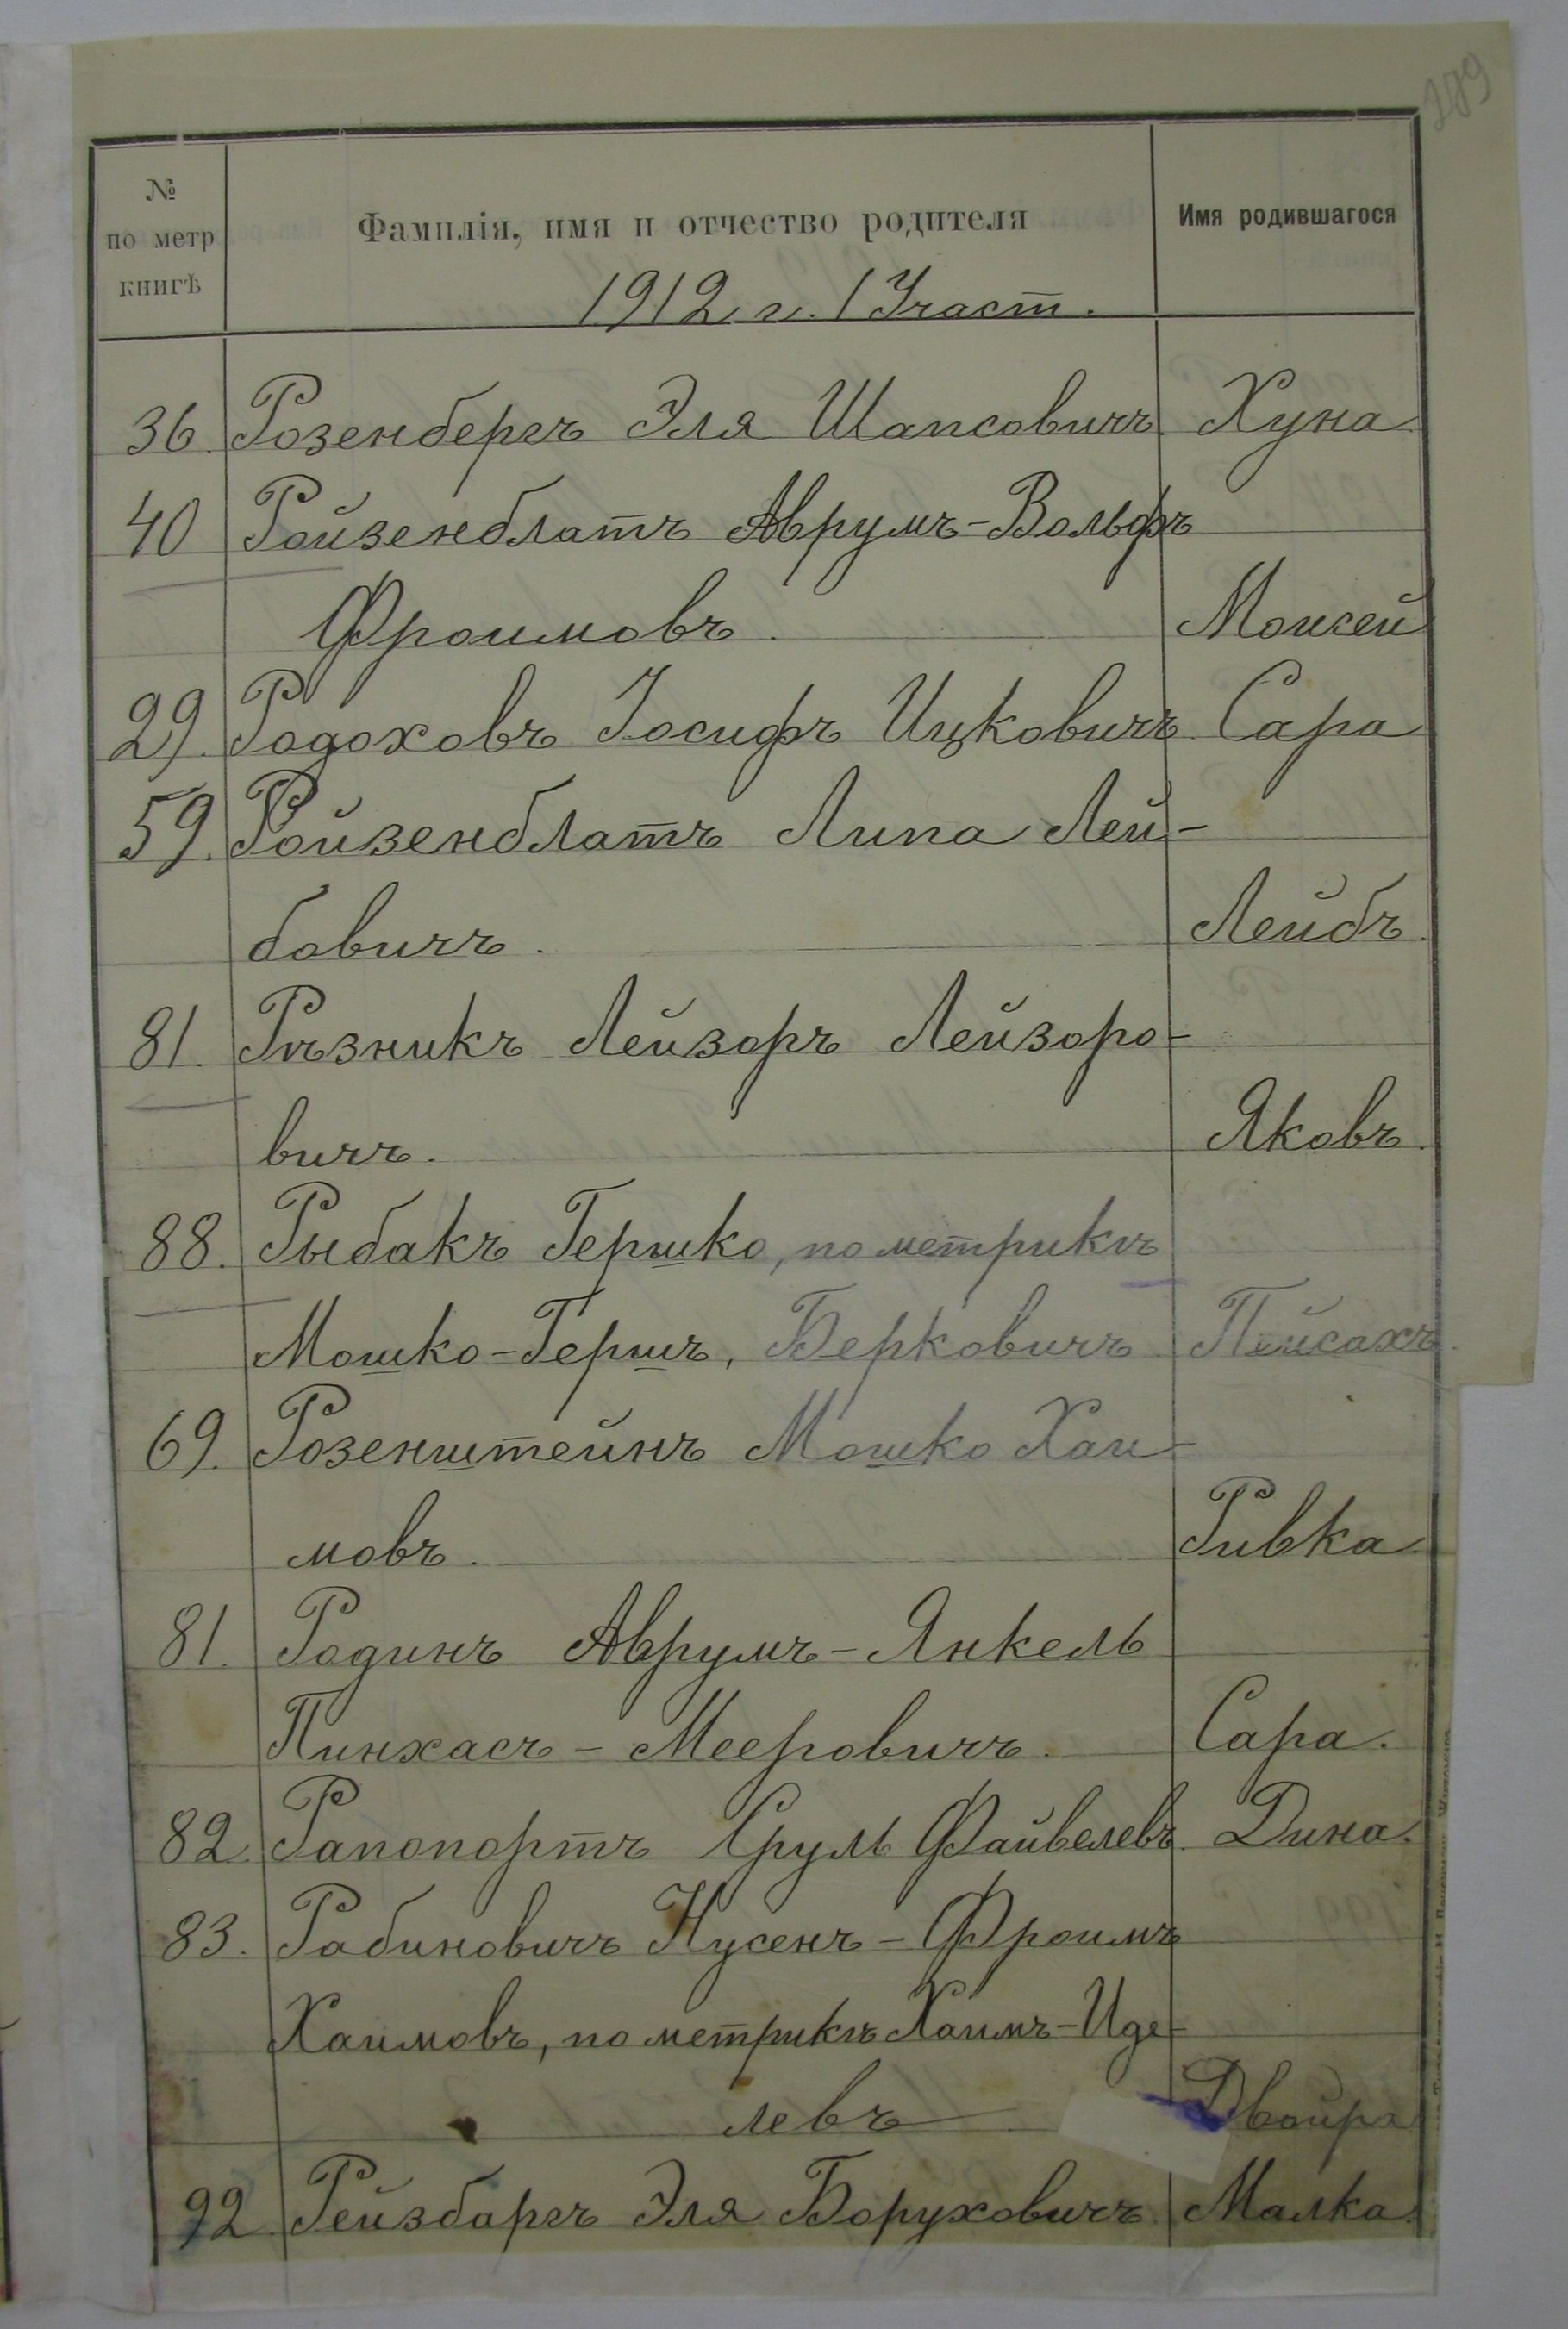 289
№ по метр книгѣ
Фамилія, имя и отчество родителя
Имя родившагося
1912 г. 1 Участ.
36. Розенбергъ Эля Шапсовичъ Хуна
40 Ройзенблатъ Аврумъ-Вольфъ
Фроимовъ. Моисей
29. Радоховъ Іосифъ Ицковичъ Сара
59. Ройзенблатъ Липа Лей-
бовичъ. Лейбъ.
81. Рѣзникъ Лейзоръ Лейзоро-
вичъ. Яковъ.
88. Рыбакъ Гершко, по метрикѣ
Мошко-Гершъ, Берковичъ Пейсахъ.
69. Розенштейнъ Мошко Хаи-
мовъ. Ривка
81. Радинъ Аврумъ-Янкель
Пинхасъ-Мееровичъ. Сара.
82. Рапопортъ Сруль Файвелевъ. Дина.
83. Рабиновичъ Нусенъ-Фроимъ
Хаимовъ, по метрикѣ Хаимъ-Иде-
левъ Двойра
92 Рейзбаргъ Эля Боруховичъ. Малка.